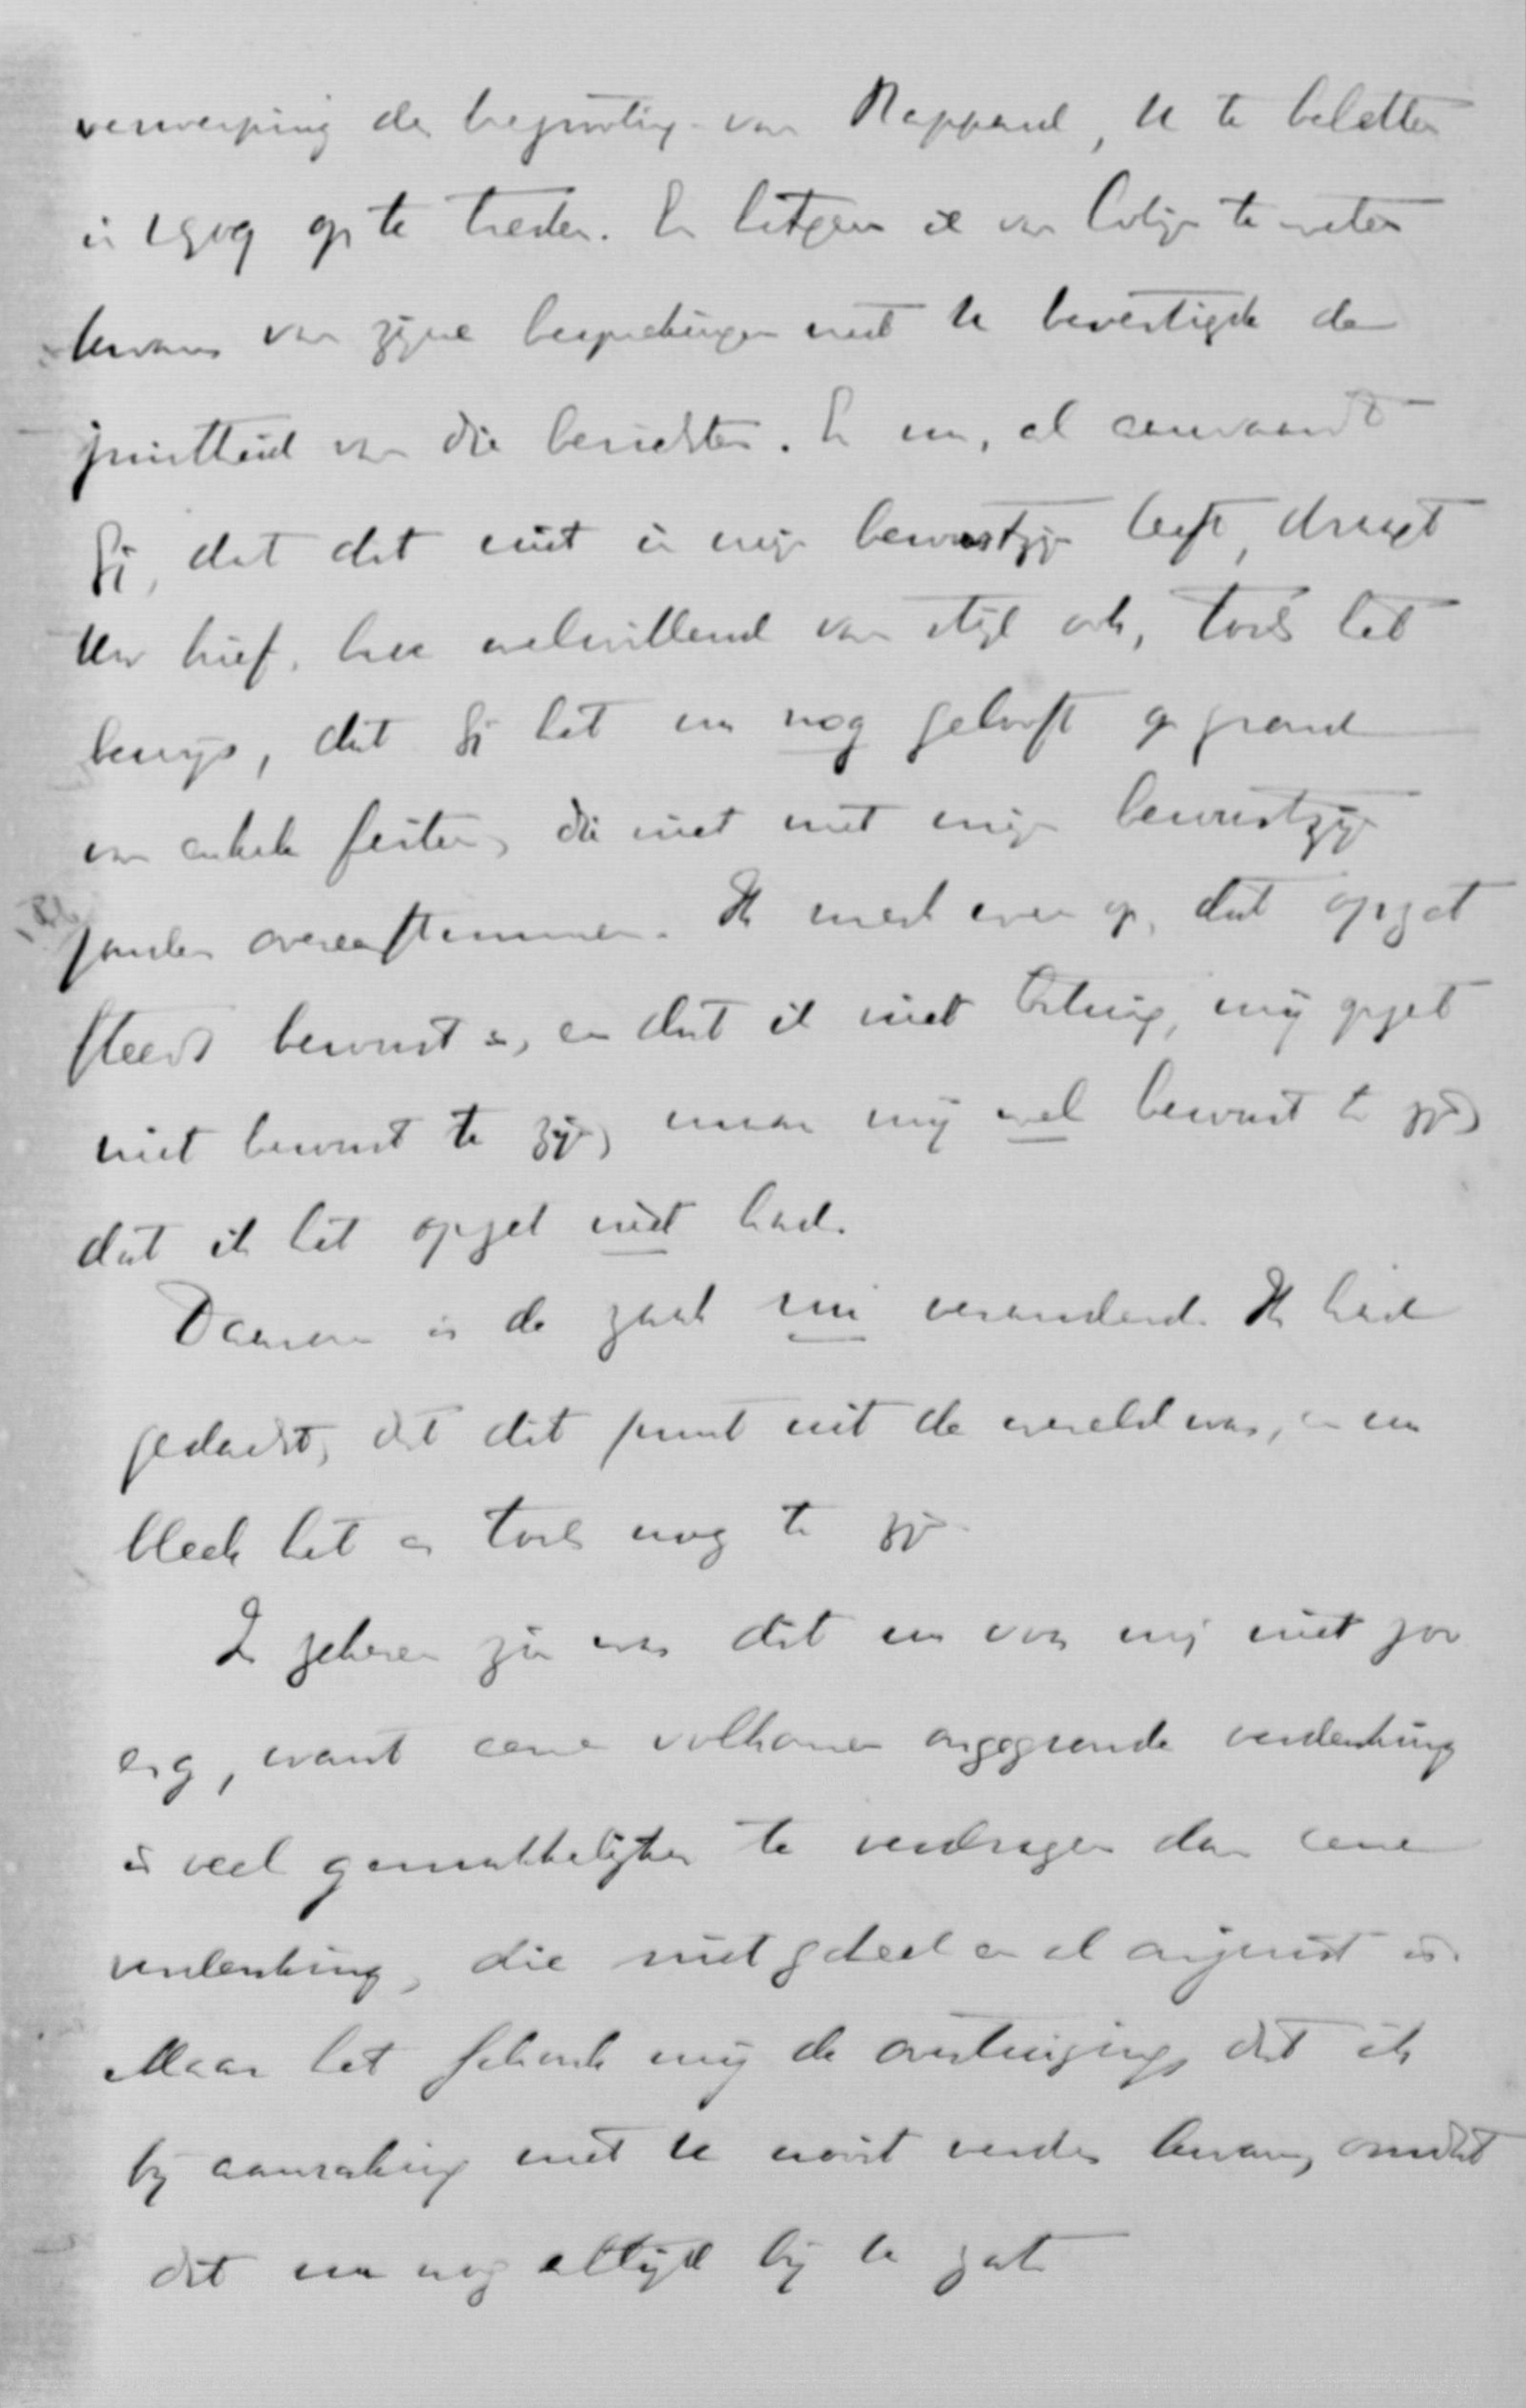 verwerping der begrooting van Rappard, U te beletten
in 1909 op te treden. En hetgeen ik van Colijn te weten
kwam van zijne besprekingen met U bevestigde de
juistheid van die berichten. En nu, al aanvaardt
Gij, dat dat niet in mijn bewustzijn leeft, draagt
Uw brief, hoe welwillend van stijl ook, toch het
bewijs, dat Gij het nu nog gelooft op grond
van enkele feiten, die niet met mijn bewustzijn
zouden overeenstemmen. Ik merk even op, dat opzet
steeds bewust is, en dat ik niet betuig, mij opzet
niet bewust te zijn, maar mij wel bewust te zijn,
dat ik het opzet niet had.
Daarom is de zaak nu veranderd. Ik had
gedacht, dat dit punt uit de wereld was, en nu
bleek het er toch nog te zijn.
In zekeren zin was dit nu voor mij niet zoo
erg, want eene volkomen ongegronde verdenking
is veel gemakkelijker te verdragen dan eene
verdenking, die niet geheel en al onjuist is.
Maar het schonk mij de overtuiging, dat ik
bij aanraking met U nooit verder kwam, omdat
dit nu nog altijd bij U zat